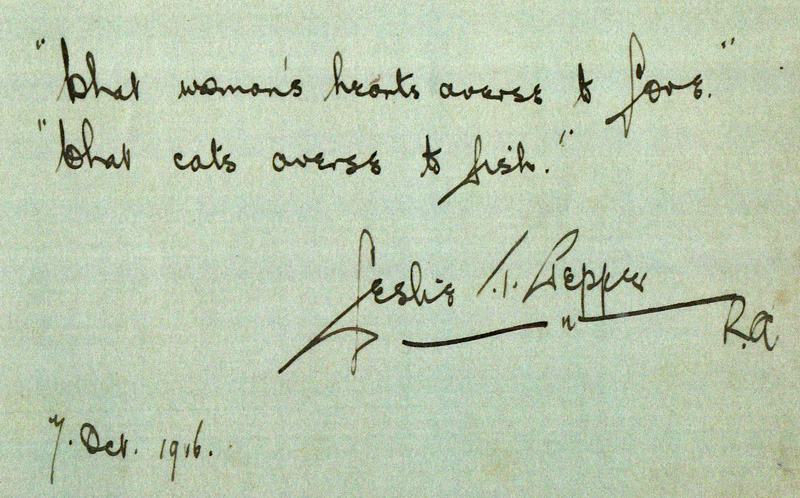 "What woman's hearts averse to love."
"What cats averse to fish."
Leslie T. Pepper
R.A
7. Oct. 1916.